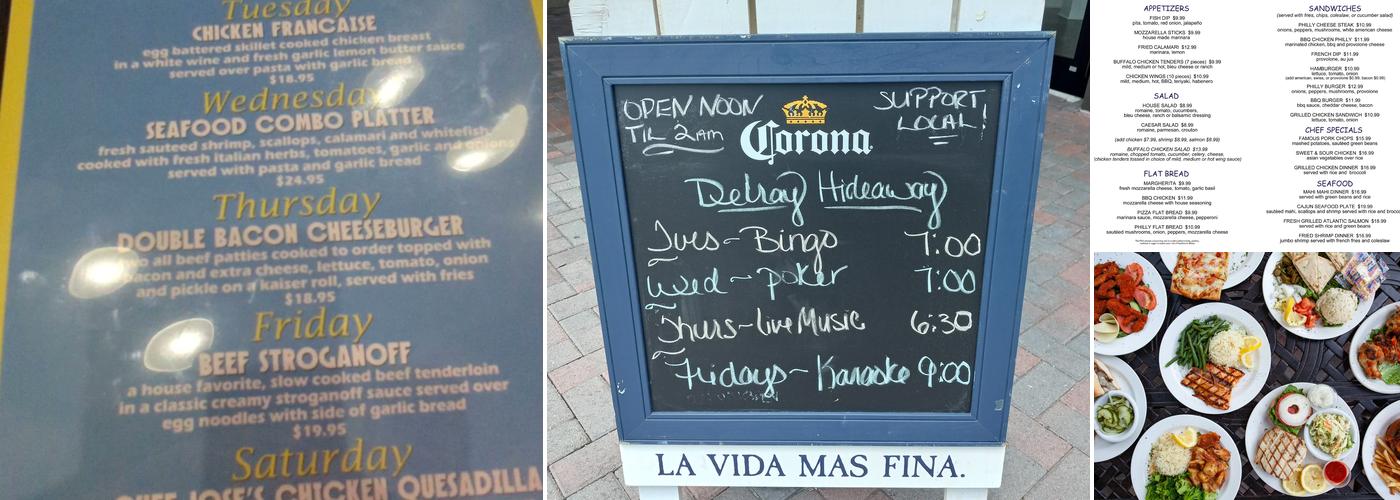 Tuesday
CHICKEN FRANCAISE
egg battered skillet cooked chicken breast
in a white wine and fresh garlic lemon butter sauce
served over pasta with garlic bread
$18.95
Wednesday
SEAFOOD COMBO PLATTER
fresh sauteed shrimp, scallops, calamari and whitefish,
cooked with fresh italian herbs, tomatoes, garlic and
served with pasta and garlic bread
$24.95
Thursday
DOUBLE BACON CHEESEBURGER
two all beef patties cooked to order topped with
bacon and extra cheese, lettuce, tomato, onion
and pickle on a kaiser roll, served with fries
$18.95
Friday
BEEF STROGANOFF
a house favorite, slow cooked beef tenderloin
in a classic creamy stroganoff sauce served over
egg noodles with side of garlic bread
$19.95
Saturday
CHEF JOSE'S CHICKEN QUESADILLA
OPEN NOON
TIL 2am
SUPPORT
LOCAL!
Corona
Delray Hideaway
Tues - Bingo 7:00
Wed - poker 7:00
Thurs - live Music 6:30
Fridays - Karaoke 9:00
LA VIDA MAS FINA.
APPETIZERS
FISH DIP $9.99
pita, tomato, red onion, jalapeño
MOZZARELLA STICKS $9.99
house made marinara
FRIED CALAMARI $12.99
marinara, lemon
BUFFALO CHICKEN TENDERS (7 pieces) $9.99
mild, medium or hot, bleu cheese or ranch
CHICKEN WINGS (10 pieces) $10.99
mild, medium, hot, BBQ, teriyaki, habenero
SALAD
HOUSE SALAD $8.99
romaine, tomato, cucumbers,
bleu cheese, ranch or balsamic dressing
CAESAR SALAD $8.99
romaine, parmesan, crouton
(add chicken $7.99, shrimp $8.99, salmon $8.99)
BUFFALO CHICKEN SALAD $13.99
romaine, chopped tomato, cucumber, celery, cheese,
(chicken tenders tossed in choice of mild, medium or hot wing sauce)
FLAT BREAD
MARGHERITA $9.99
fresh mozzarella cheese, tomato, garlic basil
BBQ CHICKEN $11.99
mozzarella cheese with house seasoning
PIZZA FLAT BREAD $9.99
marinara sauce, mozzarella cheese, pepperoni
PHILLY FLAT BREAD $10.99
sautéed mushrooms, onion, peppers, mozzarella cheese
SANDWICHES
(served with fries, chips, coleslaw, or cucumber salad)
PHILLY CHEESE STEAK $10.99
onions, peppers, mushrooms, white american cheese
BBQ CHICKEN PHILLY $11.99
marinated chicken, bbq and provolone cheese
FRENCH DIP $11.99
provolone, au jus
HAMBURGER $10.99
lettuce, tomato, onion
(add american, swiss, or provolone $0.99, bacon $0.99)
PHILLY BURGER $12.99
onions, peppers, mushrooms, provolone
BBQ BURGER $11.99
bbq sauce, cheddar cheese, bacon
GRILLED CHICKEN SANDWICH $10.99
lettuce, tomato, onion
CHEF SPECIALS
FAMOUS PORK CHOPS $15.99
mashed potatoes, sautéed green beans
SWEET & SOUR CHICKEN $16.99
asian vegetables over rice
GRILLED CHICKEN DINNER $16.99
served with rice and broccoli
SEAFOOD
MAHI MAHI DINNER $16.99
served with green beans and rice
CAJUN SEAFOOD PLATE $19.99
sautéed mahi, scallops and shrimp served with rice and
FRESH GRILLED ATLANTIC SALMON $18.99
served with rice and green beans
FRIED SHRIMP DINNER $16.99
jumbo shrimp served with french fries and coleslaw